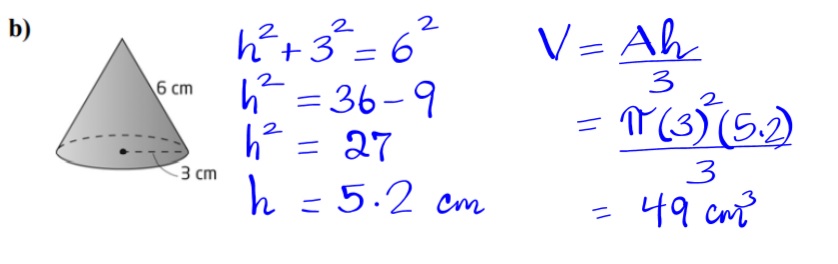 b)
6 cm
3 cm
h² + 3² = 6²
h² = 36 - 9
h² = 27
h = 5.2 cm
V = Ah/3
= π(3)²(5.2)/3
= 49 cm³